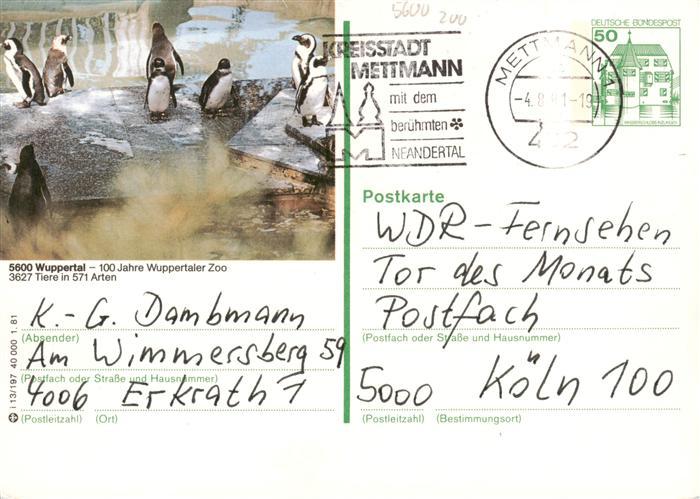 5600
200
KREISSTADT
METTMANN
mit dem
berühmten
NEANDERTAL
METTMANN
-4.8.81-19
402
DEUTSCHE BUNDESPOST
50
WASSERSCHLOSS INZLINGEN
5600 Wuppertal – 100 Jahre Wuppertaler Zoo
3627 Tiere in 571 Arten
K.-G. Dambmann
(Absender)
Am Wimmersberg 59
(Postfach oder Straße und Hausnummer)
4006 Erkrath 1
(Postleitzahl) (Ort)
i 13/197 40 000 1.81
Postkarte
WDR-Fernsehen
Tor des Monats
Postfach
(Postfach oder Straße und Hausnummer)
5000 Köln 100
(Postleitzahl) (Bestimmungsort)